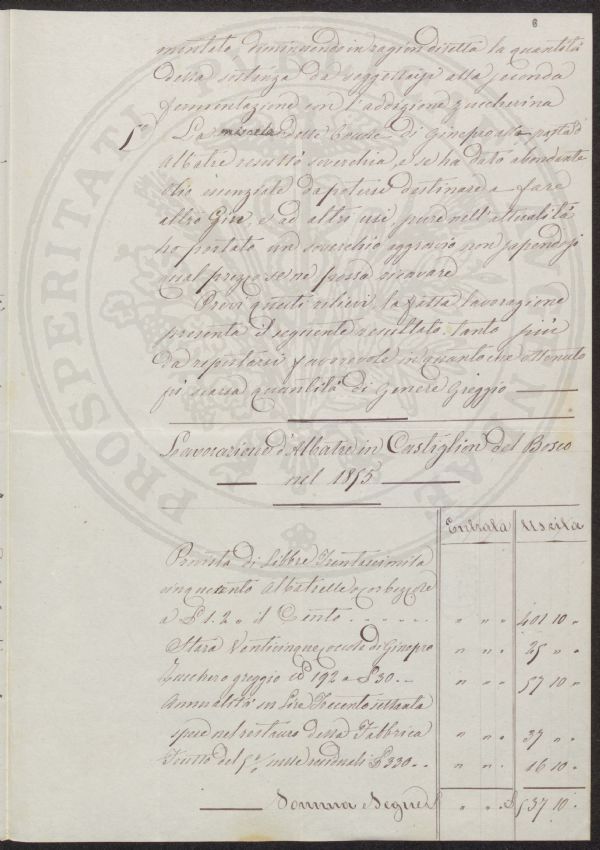 6
mentato diminuendo in ragion diretta la quantità
della sostanza da assoggettarsi alla seconda
fermentazione con l'addizione zuccherina
5º La miscela delle Coccole di Ginepro alla pasta d'
Albatre resultò soverchia, e se ha dato abondante
olio essenziale da potersi destinare a fare
altro Gin, e ad altri usi, pure nell'attualità
ho portato un soverchio aggravio non sapendosi
qual prezzo se ne possa ricavare
Dietro questi rilievi la fissa lavorazione
presenta il seguente resultato tanto più
da reputarsi favorevole in quanto che ottenuto
su scarsa quantità di Genere Greggio
Lavorazione d'Albatre in Castiglion del Bosco
nel 1855
Entrata Uscita
Provista di Libbre Trentaseimila
cinquecento Albatrelle o corbezzole
a £ 1. 2 " il Cento . . . . . . " " " 401 10 "
Stara Venticinque coccole di Ginepro " " " 25 " "
Zucchero greggio ℔ 192 a £ 30 . . " " " 57 10 "
Annualità in Lire Trecento settanta
spese nel restauro della Fabbrica " " " 37 " "
Frutto del 5 % sulle residuali £ 330 . . " " " 16 10 "
Somma e Segue £ " " " £ 537 10 "
PROSPERITATI PUBLICAE